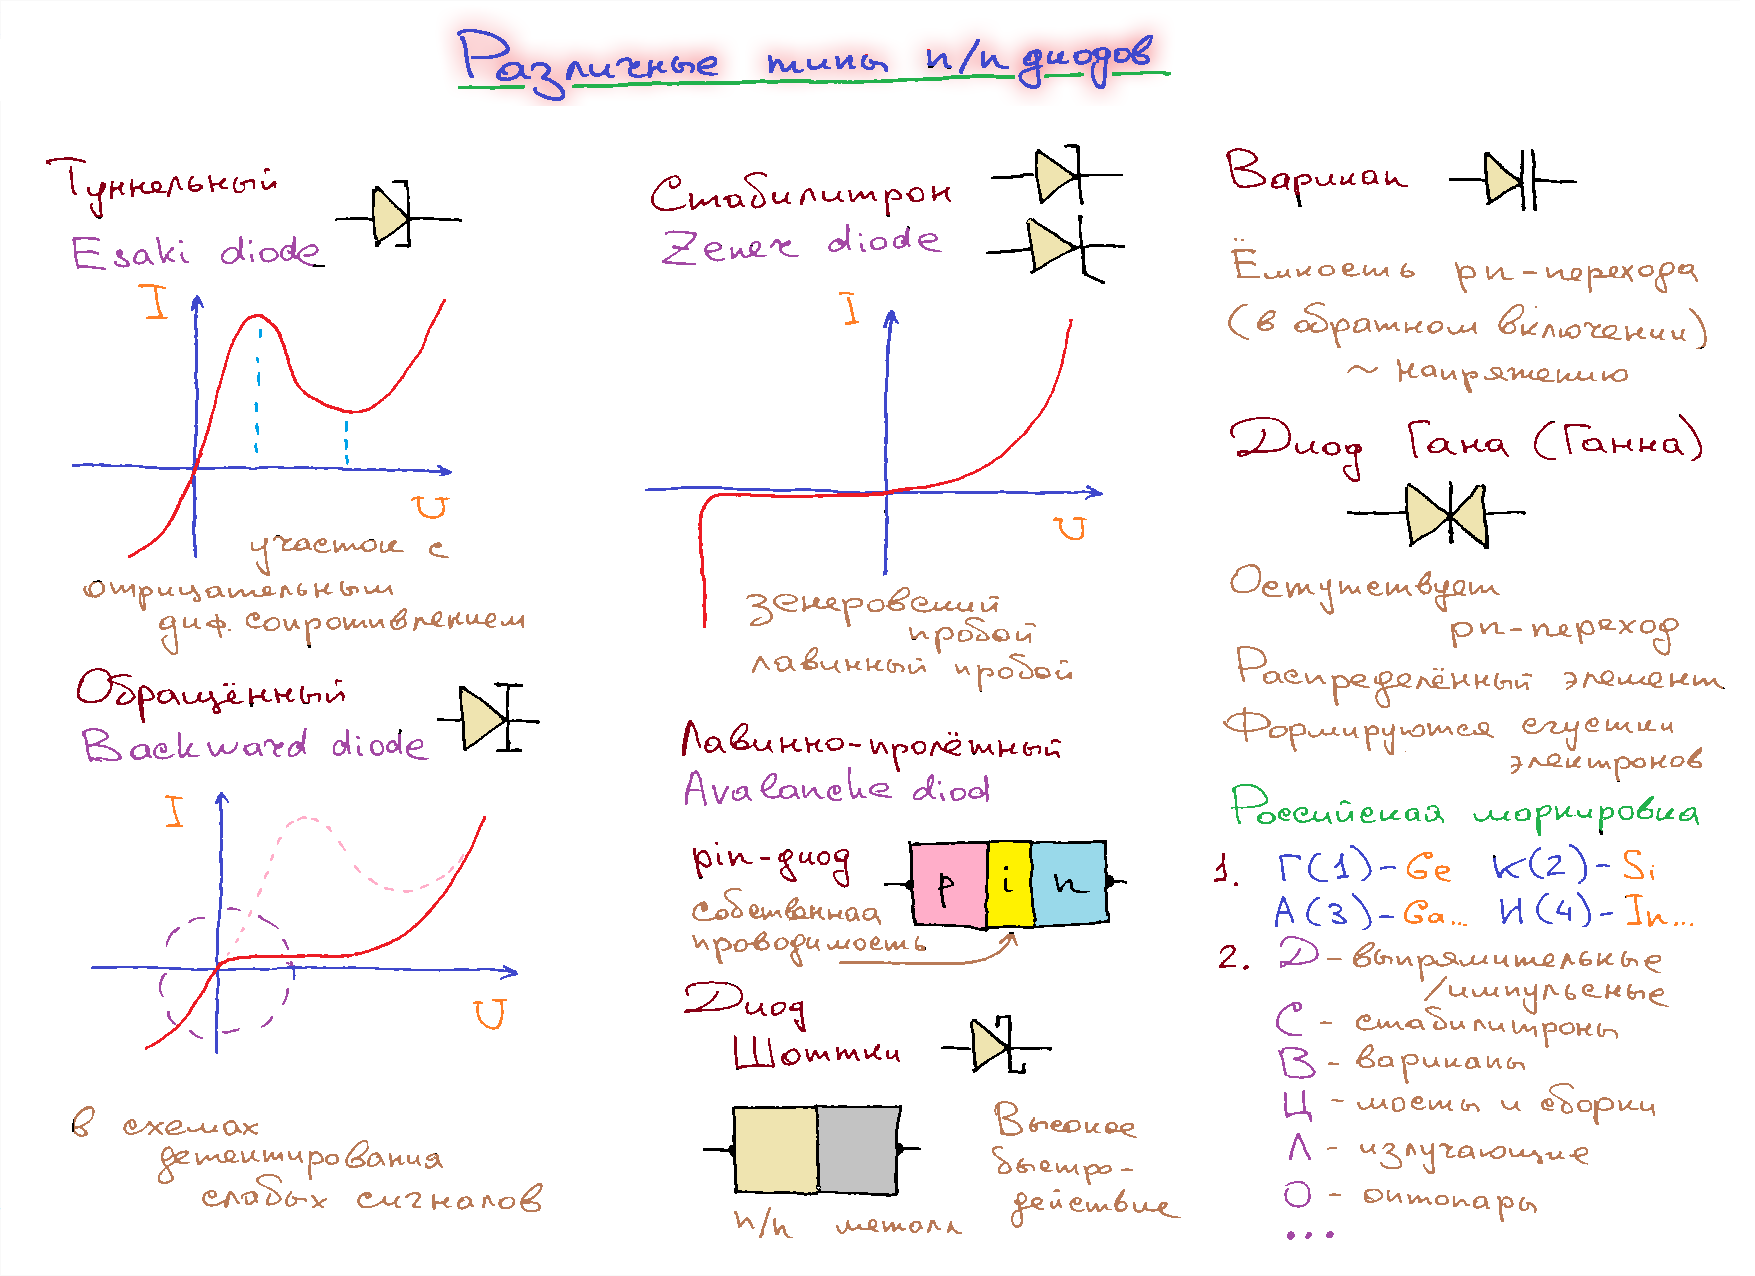 Различные типы п/п диодов
Туннельный
Esaki diode
I
U
участок с
отрицательным
диф. сопротивлением
Обращённый
Backward diode
I
U
в схемах
детектирования
слабых сигналов
Стабилитрон
Zener diode
I
U
зенеровский
пробой
лавинный пробой
Лавинно-пролётный
Avalanche diod
pin-диод
p i n
собственная
проводимость
Диод
Шоттки
п/п металл
Высокое
быстро-
действие
Варикап
Ёмкость pn-перехода
(в обратном включении)
~ напряжению
Диод Гана (Ганна)
Остутствует
pn-переход
Распределённый элемент
Формируются сгустки
электронов
Российская маркировка
1. Г(1)-Ge К(2)-Si
А(3)-Ga... И(4)-In...
2. Д-выпрямительные
/импульсные
С - стабилитроны
В - варикапы
Ц - мосты и сборки
Л - излучающие
О - оптопары
...